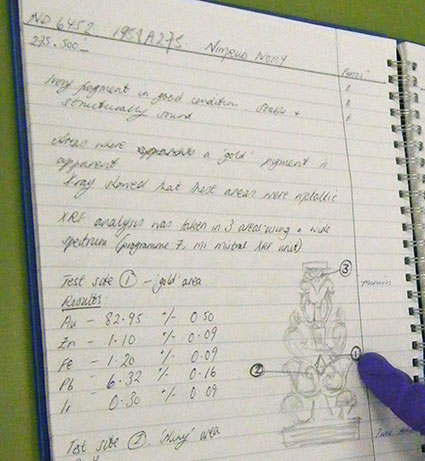 ND 6452 1958A275. Nimrud Ivory
275.500
Ivory fragment in good condition stable +
structurally sound
Areas where apparent a 'gold' pigment is
apparent
Xray showed that these areas were metallic
XRF analysis was taken in 3 areas using a wide
spectrum (programme 7, mi mistral XRF unit)
Test site ① - 'gold' area
Results
Au - 82.95 +/- 0.50
Zn - 1.10 +/- 0.09
Fe - 1.20 +/- 0.09
Pb - 6.32 +/- 0.16
Ir - 0.30 +/- 0.09
Test site ② 'shiny' area
③
②
①